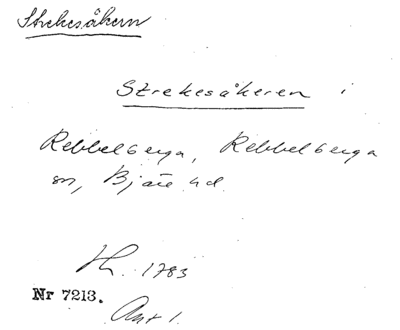 Strekesåkern
Strekesåkeren i
Rebbelberga, Rebbelberga
sn, Bjäre hd
Lh. 1783
Nr 7213.
Akt 1.